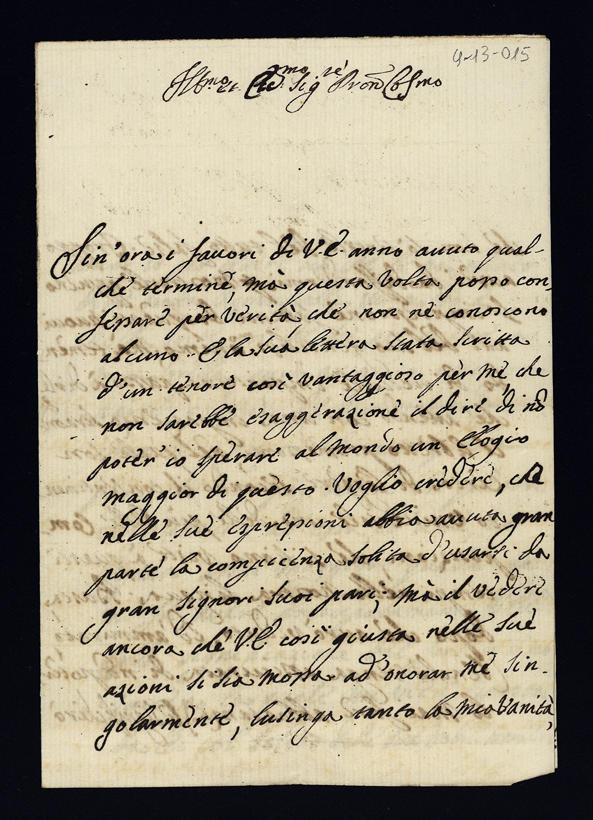 4-13-015
Ill.mo et Ecc.mo Sig.re Pron Col.mo
Sin' ora i favori di V.E. anno avuto qual-
chè terminè, mà questa volta posso con-
fessarè pèr verità, chè non nè conoscono
alcuno. E la sua lettera stata scritta
d'un tenorè così vantaggioso pèr mè, chè
non sarebbè esaggerazionè il dirè di nō
poter' io sperarè al Mondo un Elogio
maggior di questo. Voglio crederè, chè
nellè suè espressioni abbia avuta gran
partè la compiacenza solita d'usarsi da
gran Signori suoi pari; mà il vederè
ancora chè V.E. così giusta nellè suè
azioni si sia mossa ad' onorar mè sin-
golarmentè, lusinga tanto la mia Vanità,